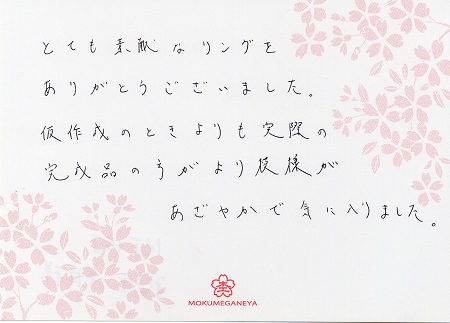 とても素敵なリングを
ありがとうございました。
仮作成のときよりも実際の
完成品の方がより模様が
あざやかで気に入りました。
MOKUMEGANEYA